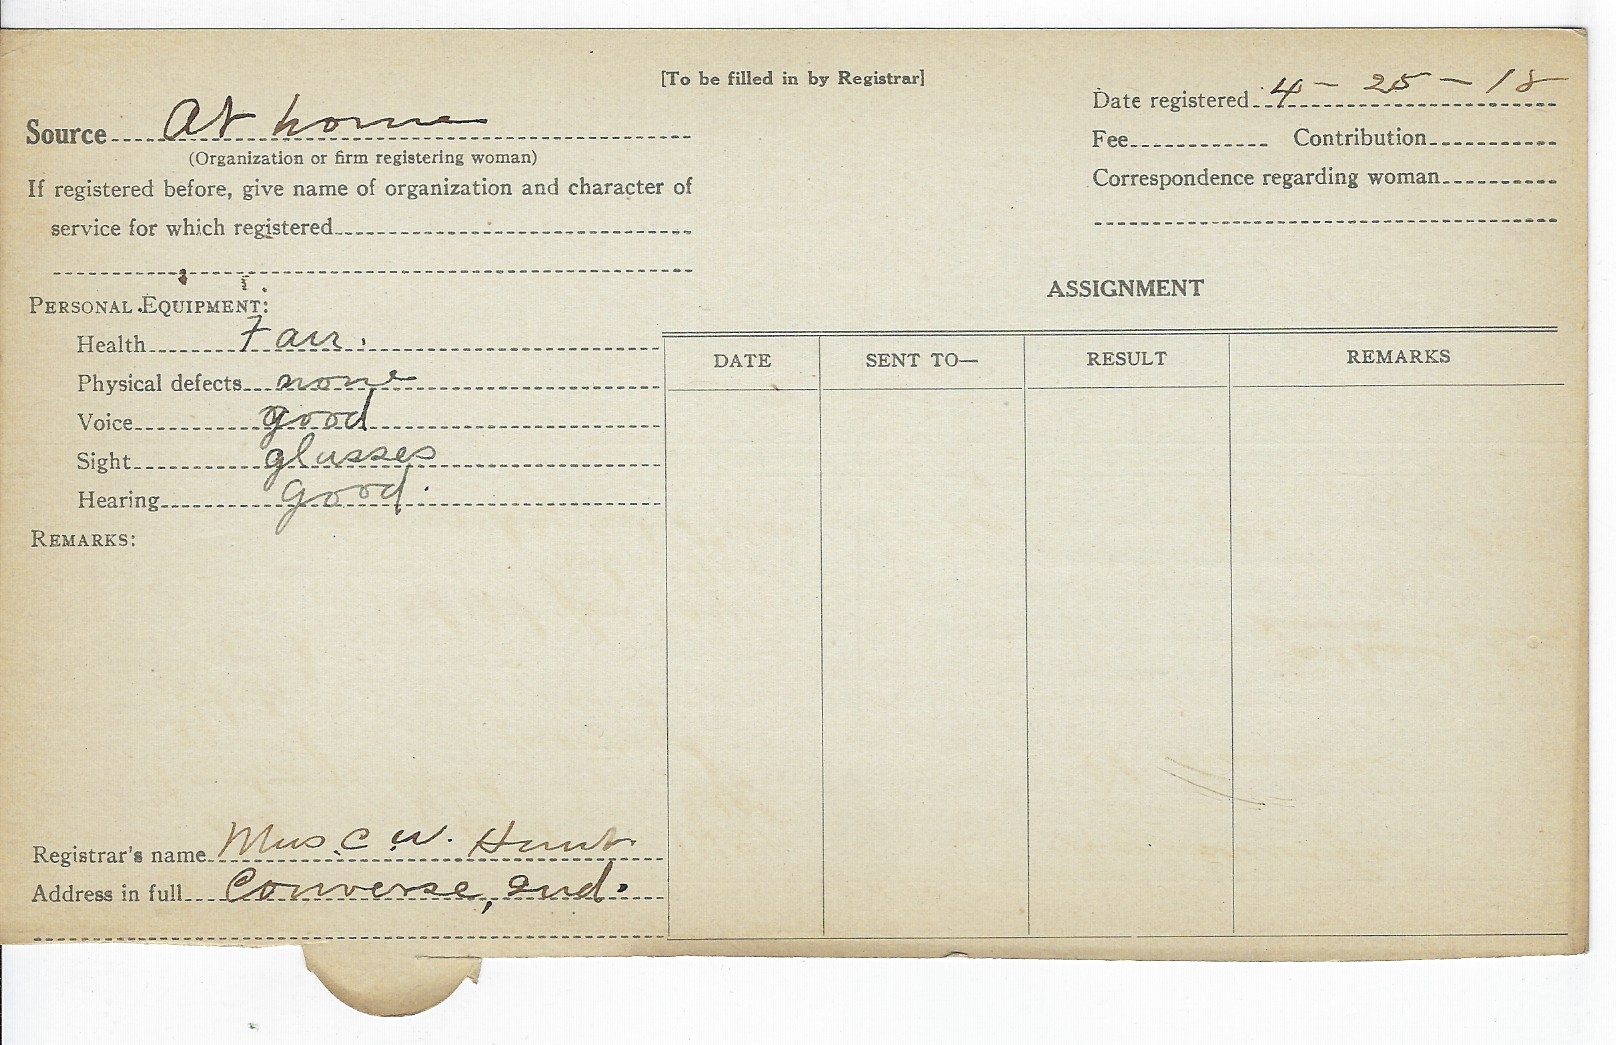 [To be filled in by Registrar]
Date registered 4 - 25 - 18
Source At home
(Organization or firm registering woman)
Fee Contribution
If registered before, give name of organization and character of
Correspondence regarding woman
service for which registered
ASSIGNMENT
PERSONAL EQUIPMENT:
Health Fair.
Physical defects none
Voice good
Sight glasses
Hearing Good.
REMARKS:
DATE SENT TO— RESULT REMARKS
Registrar's name Mrs C W. Hunt
Address in full Converse, Ind.